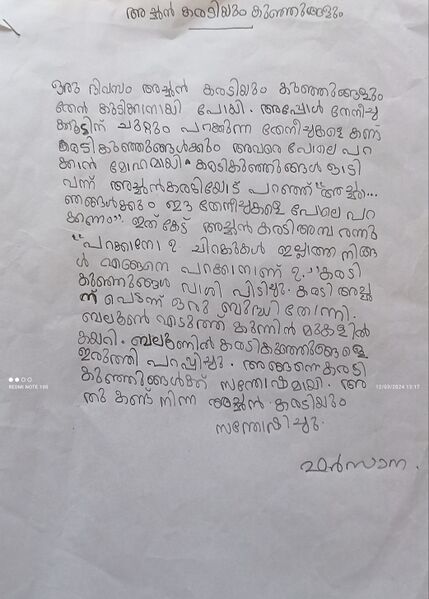 അച്ഛൻ കരടിയും കുഞ്ഞുങ്ങളും
ഒരു ദിവസം അച്ഛൻ കരടിയും കുഞ്ഞുങ്ങളും
തേൻ കുടിക്കാനായി പോയി. അപ്പോൾ തേനീച്ച
ക്കൂടിന് ചുറ്റും പറക്കുന്ന തേനീച്ചകളെ കണ്ട്
കരടി കുഞ്ഞുങ്ങൾക്കും അവരെ പോലെ പറ
ക്കാൻ മോഹമായി. കരടികുഞ്ഞുങ്ങൾ ഓടി
വന്ന് അച്ഛൻകരടിയോട് പറഞ്ഞ് "അച്ഛാ...
ഞങ്ങൾക്കും ഈ തേനീച്ചകളെ പോലെ പറ
ക്കണം". ഇത് കേട്ട് അച്ഛൻ കരടി അമ്പരന്നു
"പറക്കാനോ? ചിറകുകൾ ഇല്ലാത്ത നിങ്ങ
ൾ എങ്ങനെ പറക്കാനാണ് ?." കരടി
കുഞ്ഞുങ്ങൾ വാശി പിടിച്ചു. കരടി അച്ഛ
ന് പെടന്ന് ഒരു ബുദ്ധി തോന്നി.
ബലൂൺ എടുത്ത് കുന്നിൻ മുകളിൽ
കയറി. ബലൂണിൽ കരടികുഞ്ഞുങ്ങളെ
ഇരുത്തി പറപ്പിച്ചു. അങ്ങനെ കരടി
കുഞ്ഞിങ്ങൾക്ക് സന്തോഷമായി. അ
തു കണ്ട് നിന്ന അച്ഛൻ കരടിയും
സന്തോഷിച്ചു.
ഫർസാന.
REDMI NOTE 10S
12/03/2024 13:17